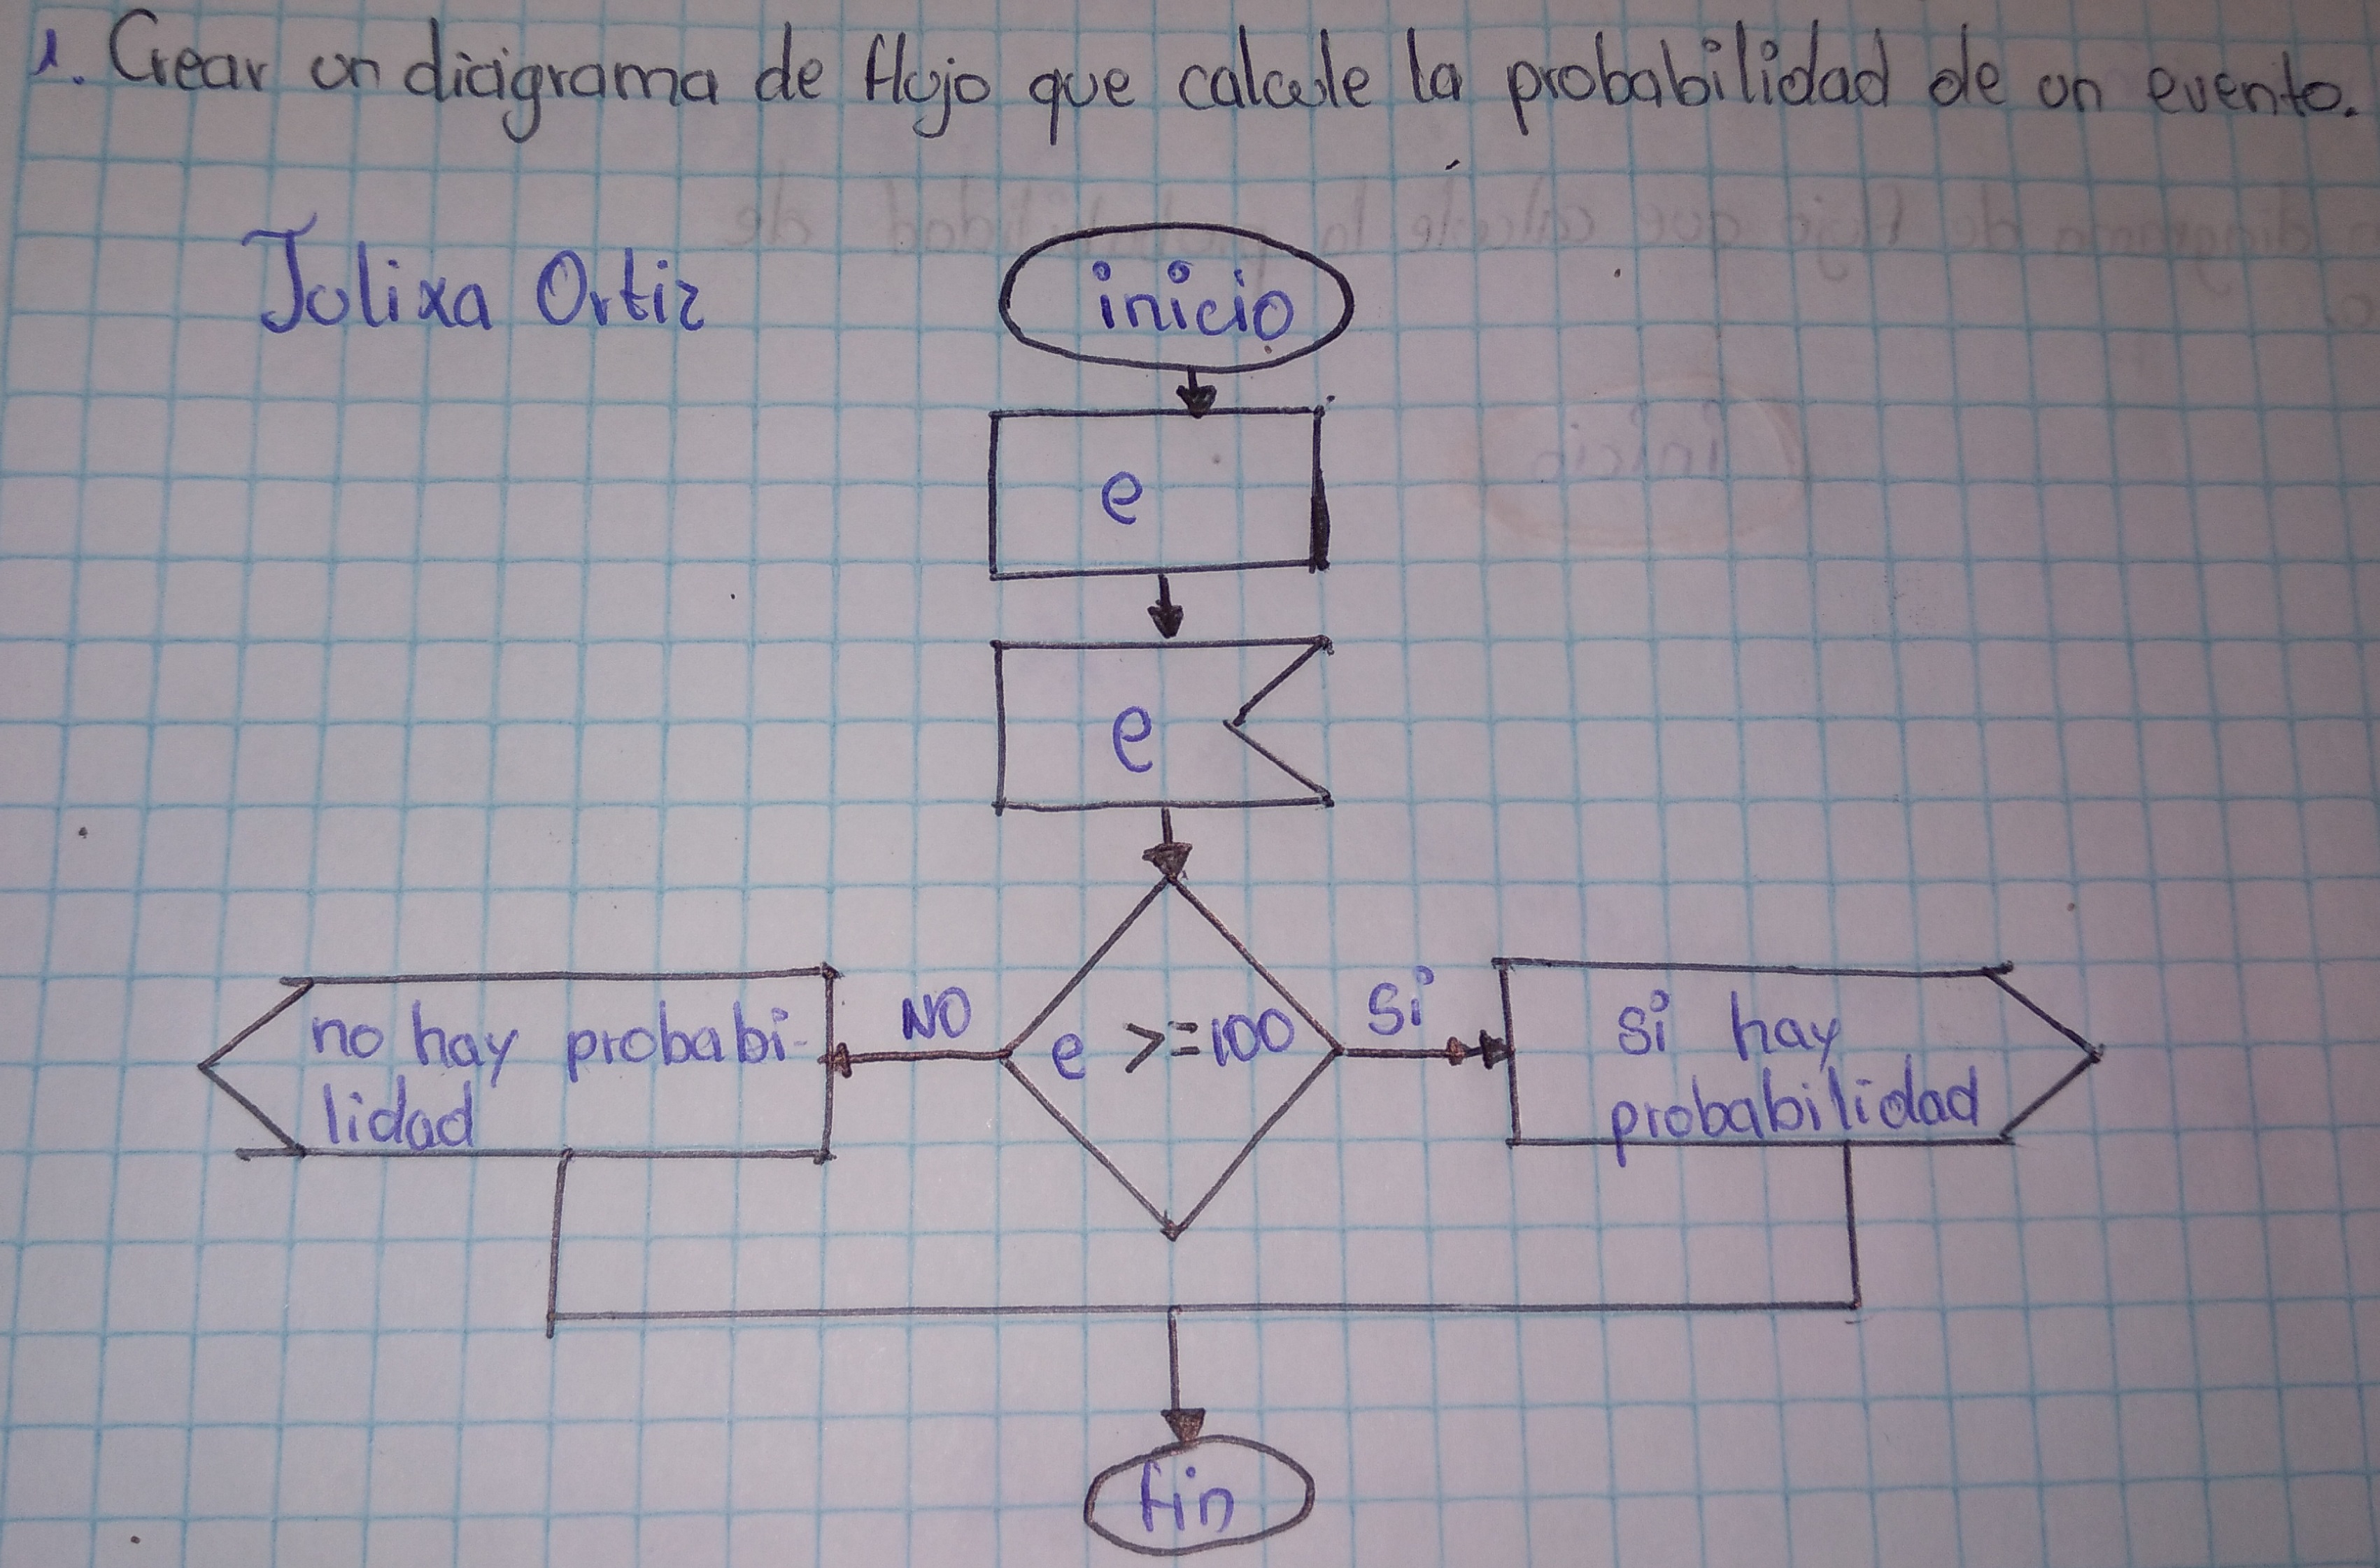 1. Crear un diagrama de flujo que calcule la probabilidad de un evento.
Julixa Ortiz
inicio
e
e
NO
e >=100
Si
no hay probabi-
lidad
si hay
probabilidad
fin